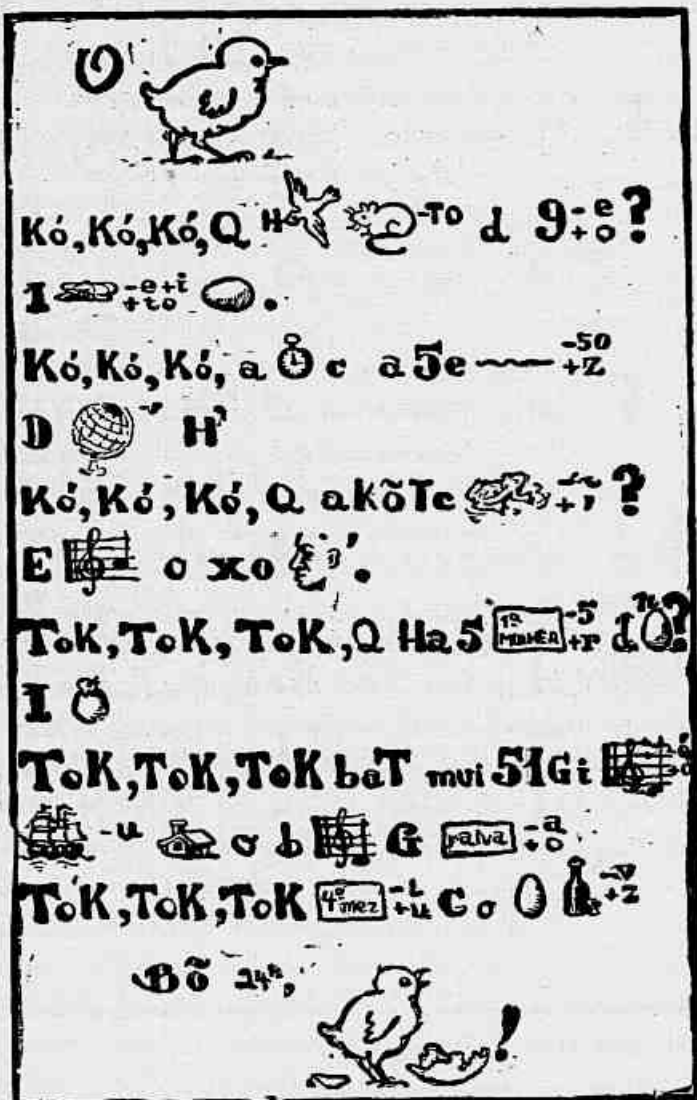 O
Kó, Kó, Kó, Q H -TO d 9 -e +o ?
1 -e+i +to .
Kó, Kó, Kó, a c a5e -50 +Z
D H
Kó, Kó, Kó, Q akõTe ?
E o xo .
ToK, ToK, ToK, Q Ha 5 1ª MULHER -5 +r d ?
1
ToK, ToK, ToK baT mui 51Gi
-u o b G raiva -a +o
ToK, ToK, ToK 4º mez -L +u C o -v +Z
Bõ 24h, !